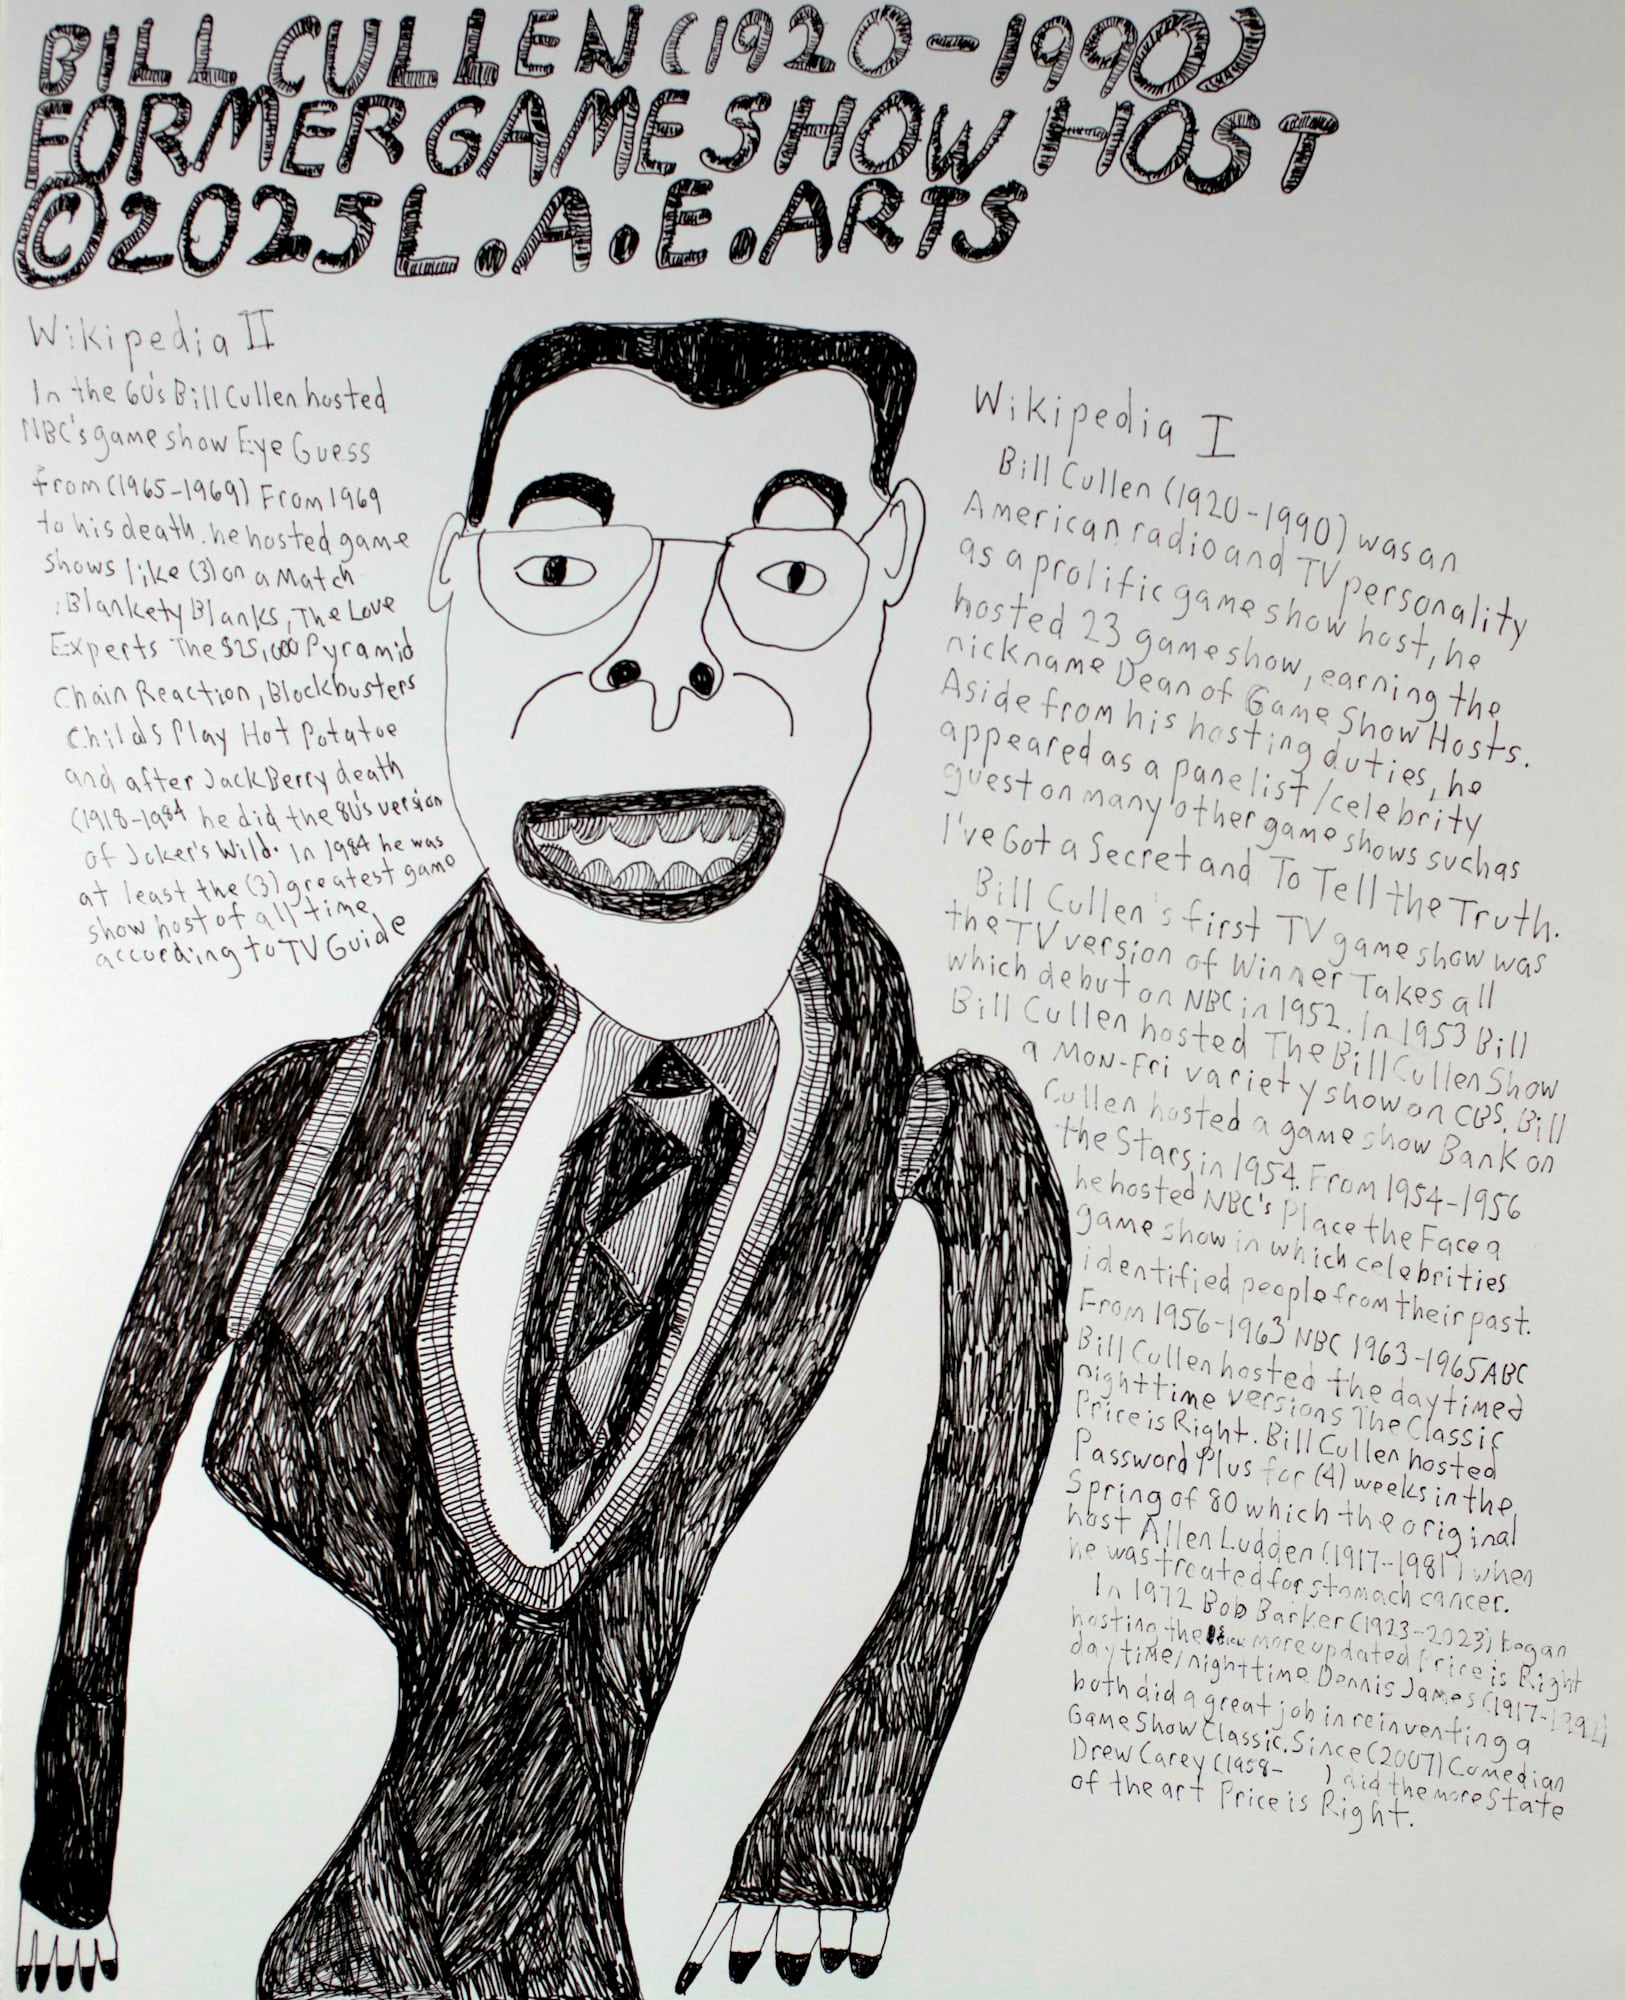 BILL CULLEN (1920-1990)
FORMER GAME SHOW HOST
©2025 L.A.E. ARTS
Wikipedia II
In the 60's Bill Cullen hosted
NBC's game show Eye Guess
from (1965-1969) From 1969
to his death. he hosted game
shows like (3) on a Match
, Blankety Blanks, The Love
Experts The $25,000 Pyramid
Chain Reaction, Blockbusters
Childs Play Hot Potatoe
and after Jack Berry death
(1918-1984 he did the 80's version
of Joker's Wild. In 1984 he was
at least the (3) greatest game
show host of all time
according to TV Guide
Wikipedia I
Bill Cullen (1920-1990) was an
American radio and TV personality
as a prolific game show host, he
hosted 23 game show, earning the
nickname Dean of Game Show Hosts.
Aside from his hosting duties, he
appeared as a panelist/celebrity
guest on many other game shows such as
I've Got a Secret and To Tell the Truth.
Bill Cullen's first TV game show was
the TV version of Winner Takes all
which debut on NBC in 1952. In 1953 Bill
Bill Cullen hosted The Bill Cullen Show
a Mon-Fri variety show on CBS. Bill
Cullen hosted a game show Bank on
the Stars in 1954. From 1954-1956
he hosted NBC's Place the Face a
game show in which celebrities
identified people from their past.
From 1956-1963 NBC 1963-1965 ABC
Bill Cullen hosted the daytimed
nighttime versions The Classic
Price is Right. Bill Cullen hosted
Password Plus for (4) weeks in the
Spring of 80 which the original
host Allen Ludden (1917-1981) when
he was treated for stomach cancer.
In 1972 Bob Barker (1923-2023) began
hosting the more updated Price is Right
daytime/nighttime Dennis James (1917-
both did a great job in reinventing a
Game Show Classic. Since (2007) Comedian
Drew Carey (1958- ) did the more State
of the art Price is Right.